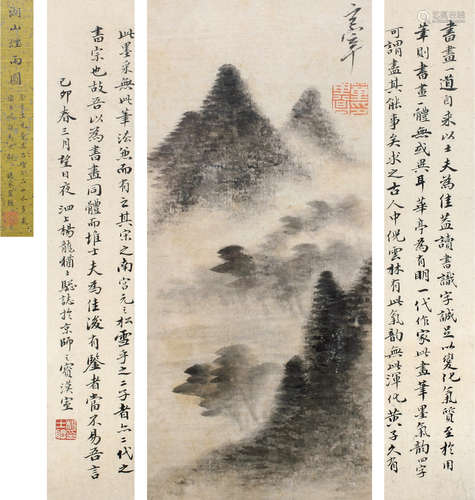 書畫一道自來以士夫為佳蓋讀書識字誠足以變化氣質至於用
筆則書畫一體無或異耳華亭為有明一代作家此畫筆墨氣韻四字
可謂盡其能事矣求之古人中倪雲林有此氣韻無此渾化黃子久有
玄宰
此墨采無此筆法兼而有之其宋之南宮元之松雪乎之二子者亦二代之
書宗也故吾以為書畫同體而堆士夫為佳後有鑒者當不易吾言
己卯春三月望日夜泗上楊龍
誌於京師之寶漢室
湖山煙雨圖